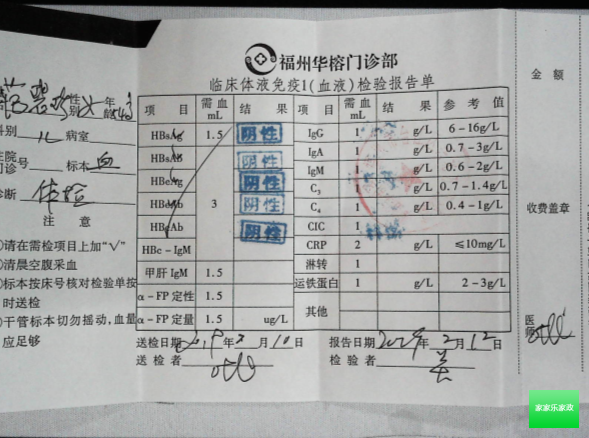 福州华榕门诊部
临床体液免疫1(血液)检验报告单
性别 女 年龄
科别 儿 病室
号 标本 血
诊断 体检
注 意
①请在需检项目上加“√”
②清晨空腹采血
③标本按床号核对检验单按
时送检
④干管标本切勿摇动,血量
应足够
项 目 需血mL 结 果 项 目 需血mL 结 果 参 考 值
HBsAg 1.5 阴性 IgG 1 g/L 6-16g/L
HBsAb 阴性 IgA 1 g/L 0.7-3g/L
HBeAg 阴性 IgM 1 g/L 0.6-2g/L
HBeAb 3 阴性 C3 1 g/L 0.7-1.4g/L
HBcAb 阴性 C4 1 g/L 0.4-1g/L
HBc-IgM CIC 1
CRP 2 g/L ≤10mg/L
甲肝IgM 1.5 淋转 1
运铁蛋白 1 g/L 2-3g/L
α-FP定性 1.5 其他
α-FP定量 1.5 ug/L
送检日期 年 2 月 10 日 报告日期 年 2 月 12 日
送检者 检验者
金 额
收费盖章
医师
家家乐家政